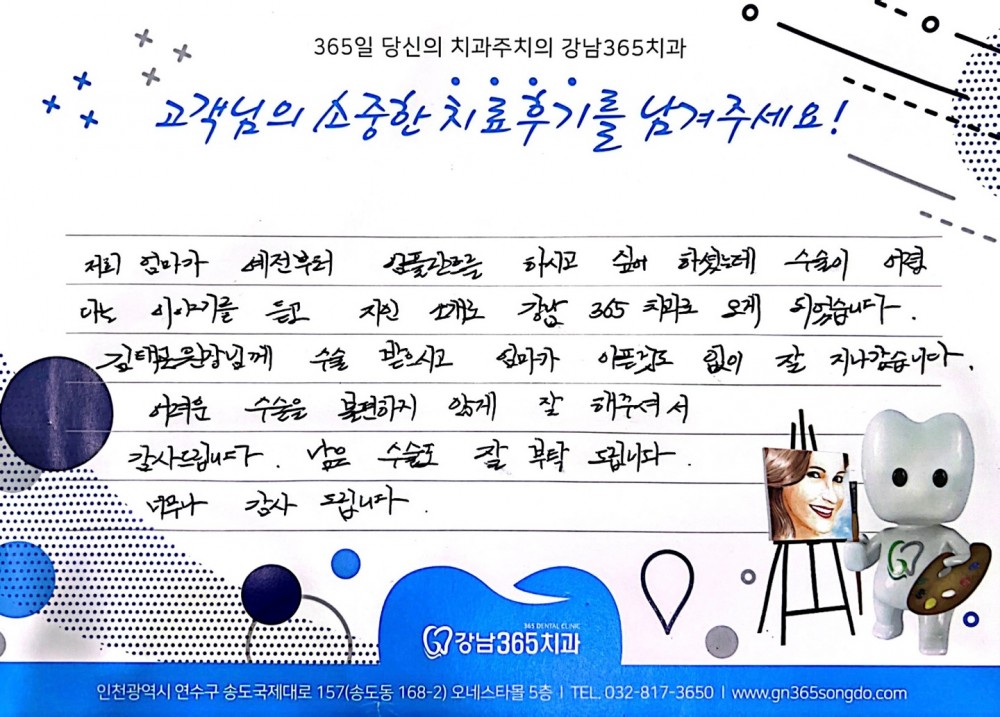 365일 당신의 치과주치의 강남365치과
고객님의 소중한 치료후기를 남겨주세요!
저희 엄마가 예전부터 임플란트를 하시고 싶어 하셨는데 수술이 어렵
다는 이야기를 듣고 지인 소개로 강남 365 치과로 오게 되었습니다.
김태환원장님께 수술 받으시고 엄마가 아픈것도 없이 잘 지나갔습니다.
어려운 수술을 불편하지 않게 잘 해주셔서
감사드립니다. 남은 수술도 잘 부탁 드립니다.
너무나 감사 드립니다.
365 DENTAL CLINIC
강남365치과
인천광역시 연수구 송도국제대로 157(송도동 168-2) 오네스타몰 5층 I TEL. 032-817-3650 I www.gn365songdo.com